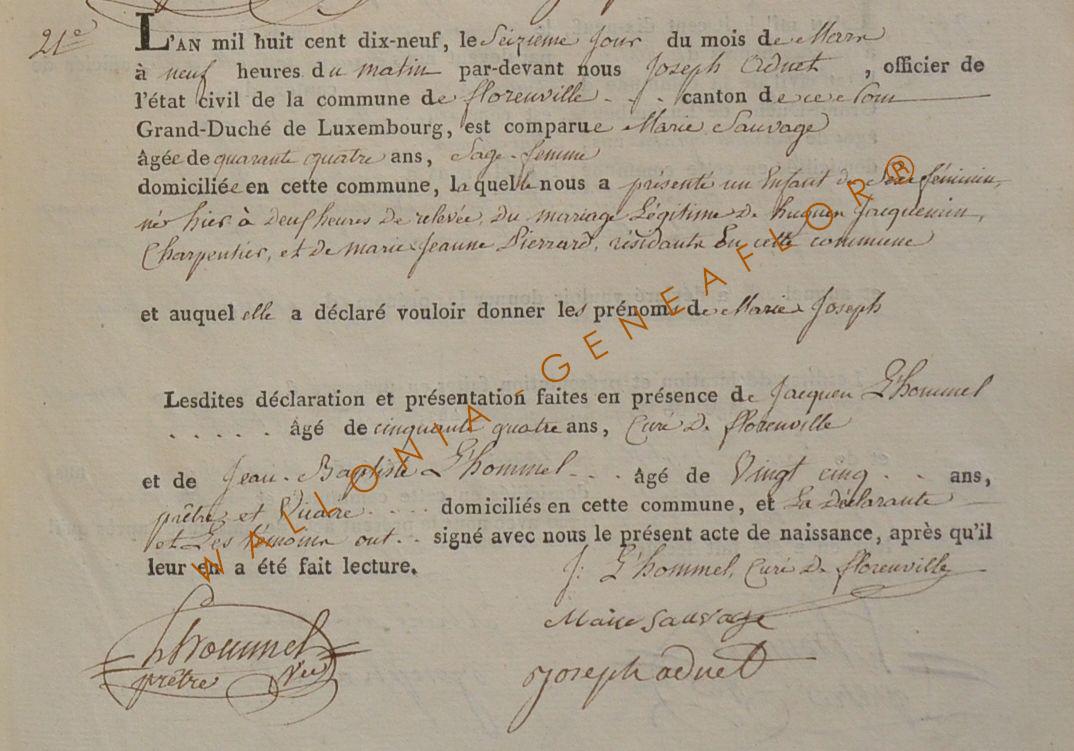 21e
L'AN mil huit cent dix-neuf, le Seizieme Jour du mois de Mars
à neuf heures du matin par-devant nous Joseph Adnet, officier de
l'état civil de la commune de florenville - - canton de ce Nom
Grand-Duché de Luxembourg, est comparue Marie Sauvage
âgée de quarante quatre ans, Sage-femme
domiciliée en cette commune, laquelle nous a présenté un Enfant du Sexe féminin,
né hier à deux heures de relevée, du mariage Légitime de hugues Jacquemin,
Charpentier, et de marie Jeanne Pierrard, résidants En cette commune
et auquel elle a déclaré vouloir donner les prénoms de Marie Joseph
Lesdites déclaration et présentation faites en présence de Jacques L'hommel
. . . . . âgé de cinquante quatre ans, Curé De florenville
et de Jean-Baptiste L'hommel - - . âgé de Vingt cinq . . ans,
prêtre et Vicaire . . . . domiciliés en cette commune, et La Déclarante
et Les témoins ont . . signé avec nous le présent acte de naissance, après qu'il
leur en a été fait lecture.
J: L'hommel, Curé De florenville
Marie Sauvage
Lhommel
prêtre Vic
Joseph adnet
WALLONIA-GENEAFLOR®